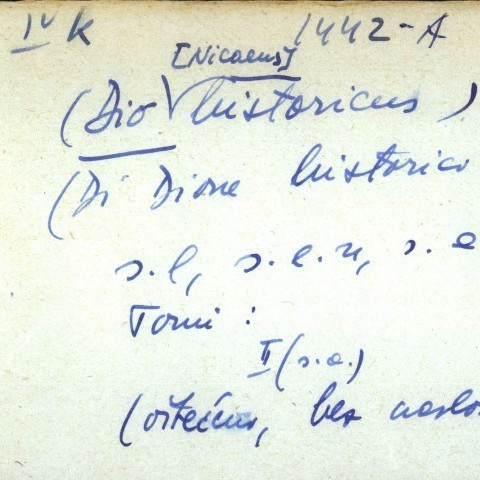 IV K 1442-A
[Nicaeus]
(Dio historicus)
(Di Dione historico
s.l., s.e.n., s.a
Tomi :
II (s.a.)
(oštećeno, bez naslo